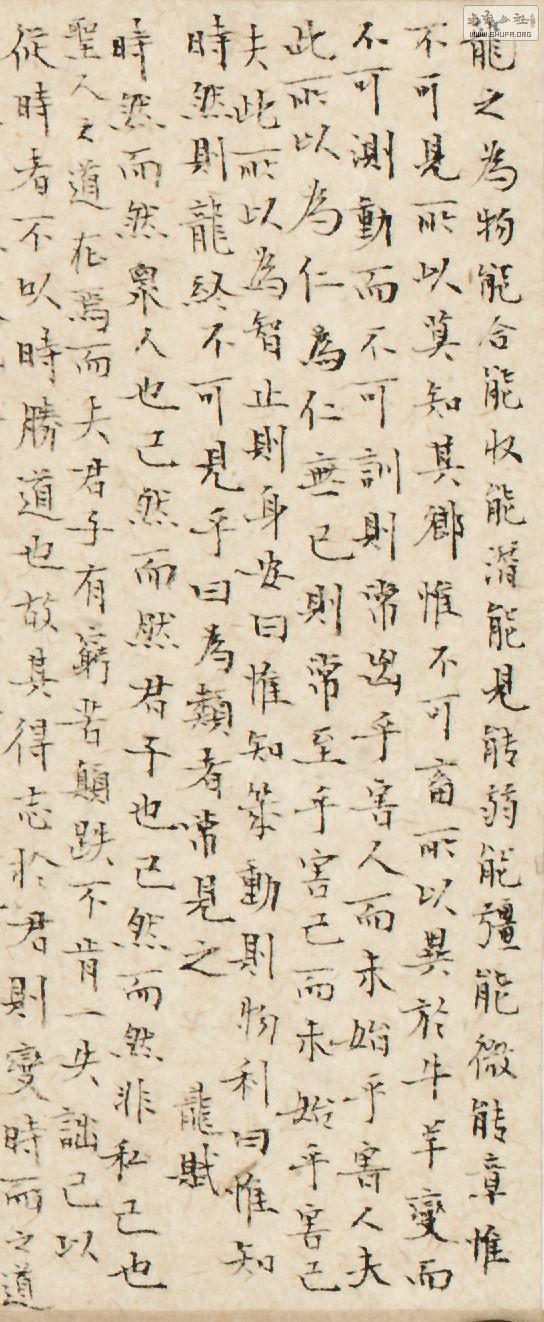 龍之為物能合能收能潛能見能弱能彊能微能章惟
不可見所以莫知其鄉惟不可畜所以異於牛羊變而
不可測動而不可訓則常出乎害人而未始乎害人夫
此所以為仁為仁無已則常至乎害己而未始乎害己
夫此所以為智止則身安曰惟知幾動則物利曰惟知
時然則龍終不可見乎曰為類者常見之
龍賦
時然而然衆人也己然而然君子也己然而然非私己也
聖人之道在焉而夫君子有窮苦顛跌不肯一失詘己以
從時者不以時勝道也故其得志於君則變時而之道
WWW.SHUFA.ORG